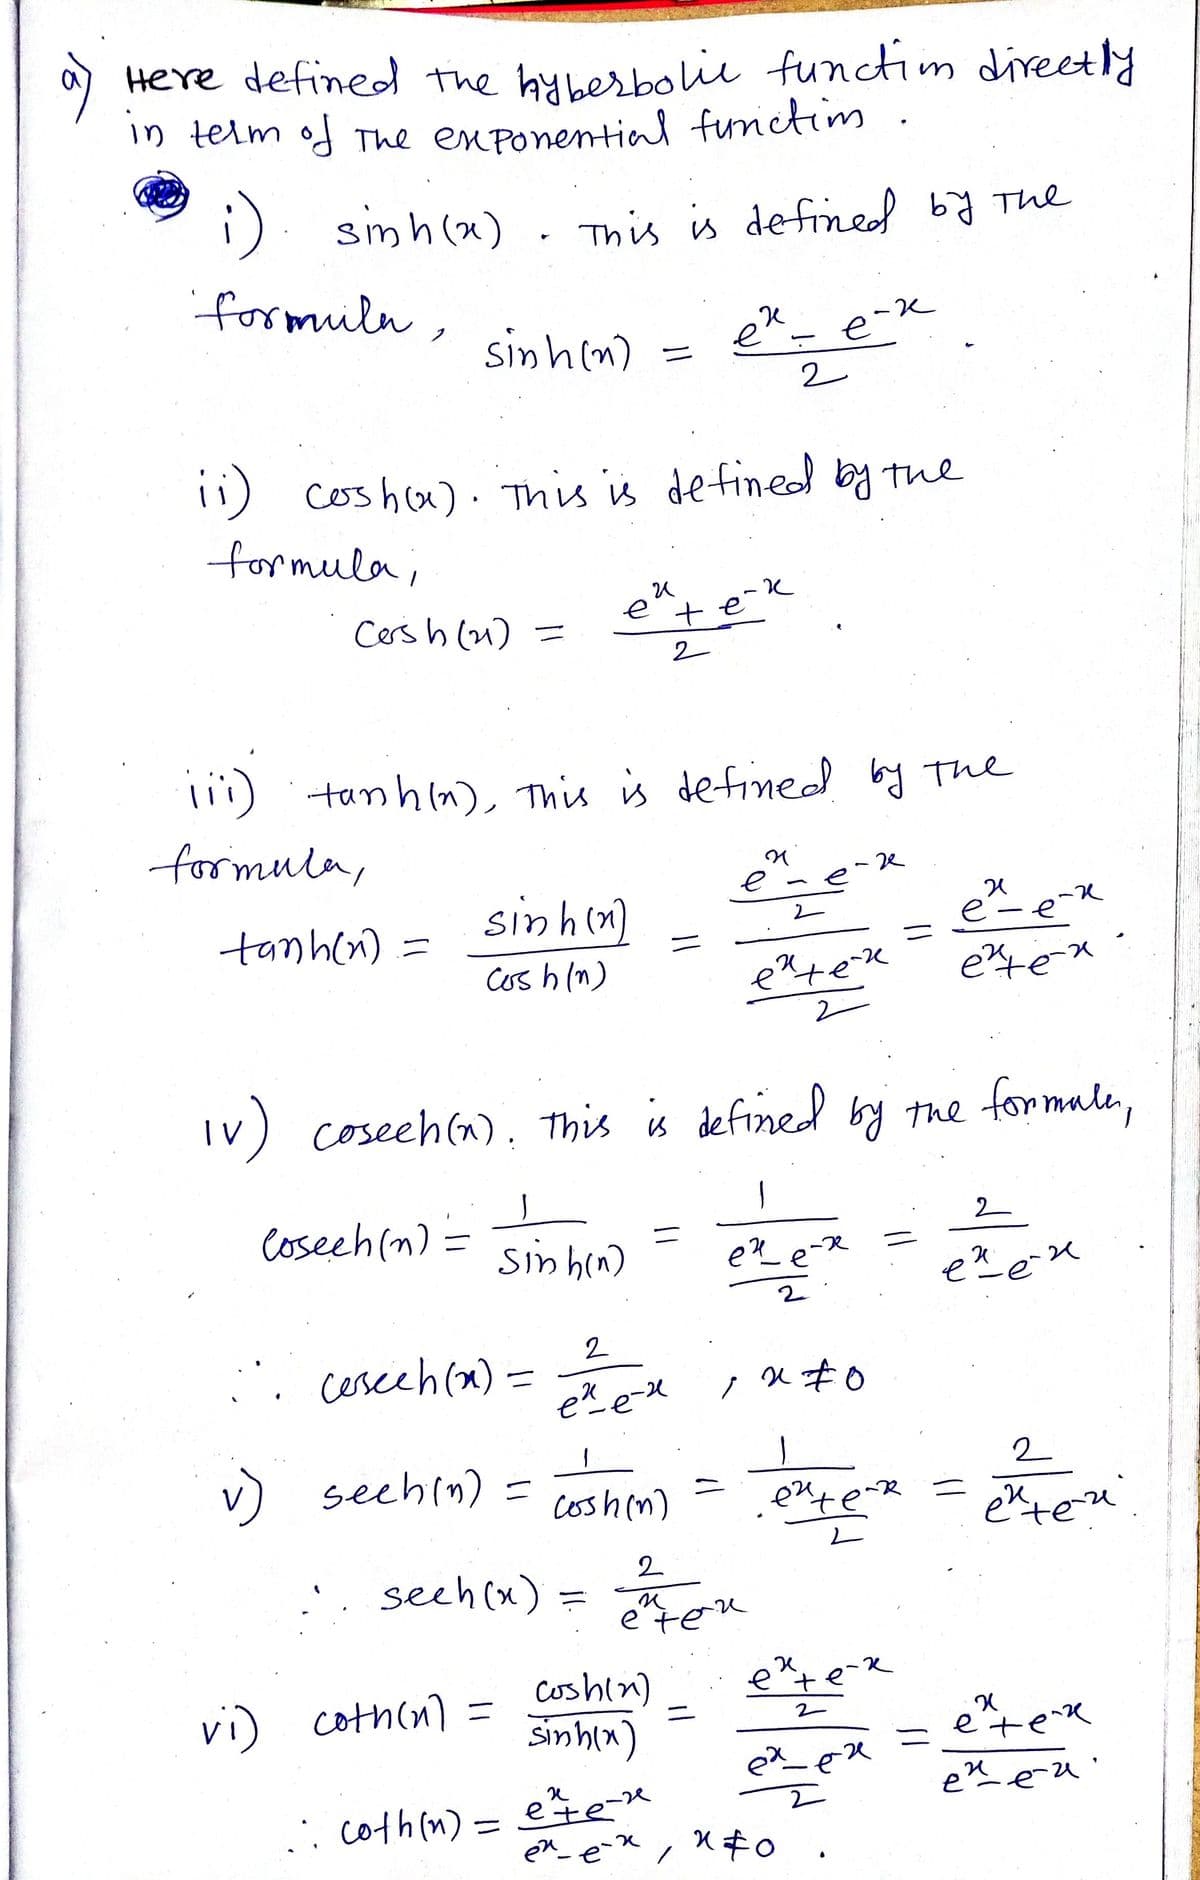 a) Here defined the hyberbolic function directly
in term of The exponential function .
i) . sinh(x) . This is defined by The
formula , sinh(x) = (e^x - e^-x)/2 .
ii) cosh(x) . This is defined by the
formula,
cosh(x) = (e^x + e^-x)/2 .
iii) tanh(x), This is defined by the
formula,
tanh(x) = sinh(x)/cosh(x) = ((e^x - e^-x)/2)/((e^x + e^-x)/2) = (e^x - e^-x)/(e^x + e^-x) .
iv) cosech(x). This is defined by the formula,
cosech(x) = 1/sinh(x) = 1/((e^x - e^-x)/2) = 2/(e^x - e^-x) .
∴ cosech(x) = 2/(e^x - e^-x) , x ≠ 0
v) sech(x) = 1/cosh(x) = 1/((e^x + e^-x)/2) = 2/(e^x + e^-x) .
∴ sech(x) = 2/(e^x + e^-x)
vi) coth(x) = cosh(x)/sinh(x) = ((e^x + e^-x)/2)/((e^x - e^-x)/2) = (e^x + e^-x)/(e^x - e^-x) .
∴ coth(x) = (e^x + e^-x)/(e^x - e^-x) , x ≠ 0 .